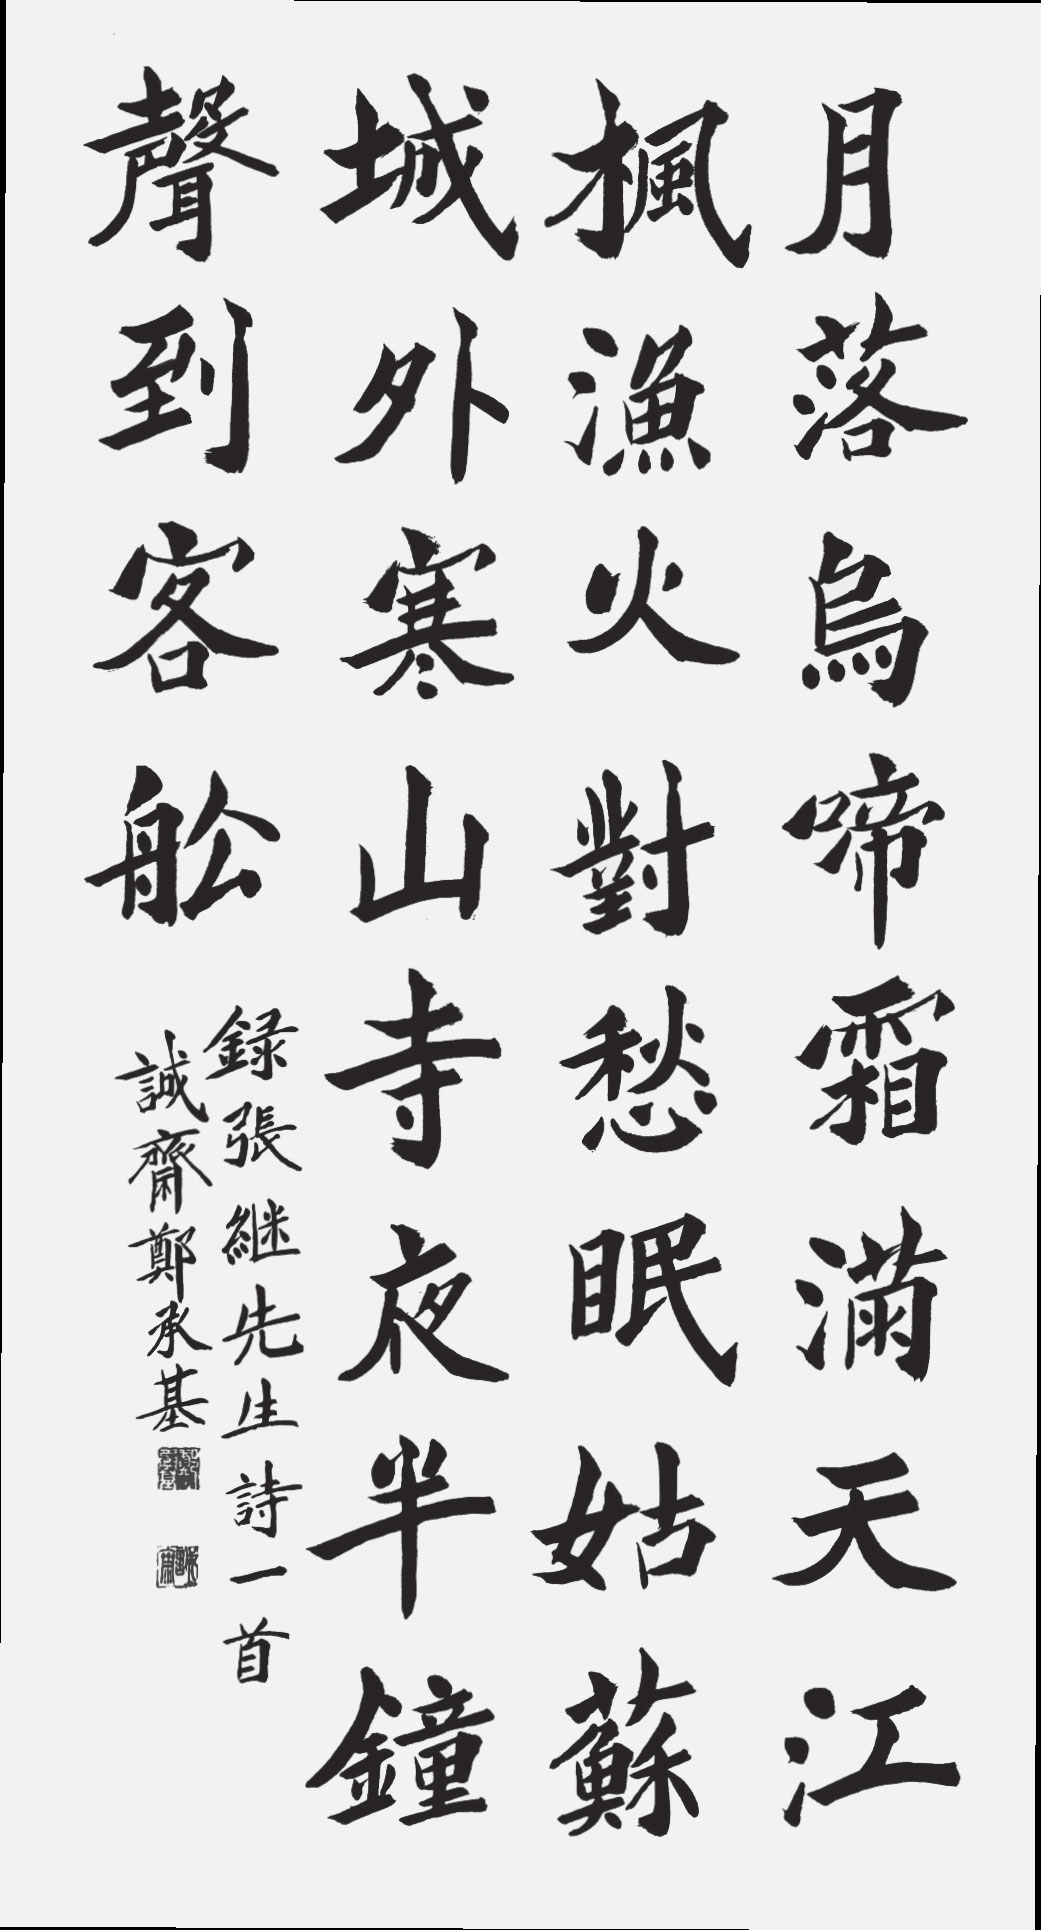 月落烏啼霜滿天江
楓漁火對愁眠姑蘇
城外寒山寺夜半鐘
聲到客舩
録張継先生詩一首
誠齋鄭承基